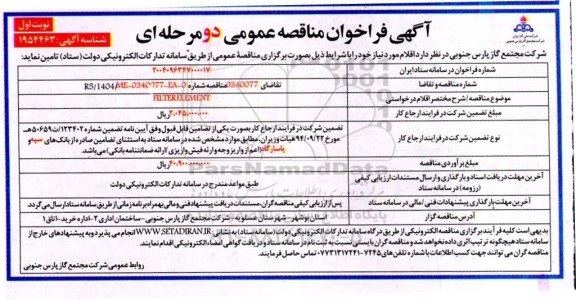 نوبت اول
شناسه آگهی: ۱۹۵۴۴۶۳
آگهی فراخوان مناقصه عمومی دو مرحله ای
شرکت مجتمع گاز پارس جنوبی در نظر دارد اقلام مورد نیاز خود را با شرایط ذیل بصورت برگزاری مناقصه عمومی از طریق سامانه تدارکات الکترونیکی دولت (ستاد) تامین نماید:
شماره فراخوان در سامانه ستاد ایران
شماره مناقصه و تقاضا
تقاضای 0340077 مناقصه شماره R5/1404/ME-0340077-EA-0
موضوع مناقصه / شرح مختصر اقلام درخواستی
FILTER ELEMENT
مبلغ تضمین شرکت در فرایند ارجاع کار
ریال
نوع تضمین شرکت در فرایند ارجاع کار
تضمین شرکت در فرایند ارجاع کار بصورت یکی از تضامین قابل قبول وفق آیین نامه تضمین شماره ۱۲۳۴۰۲/ت۵۰۶۵۹ه
مورخ ۹۴/۰۹/۲۲ هیات وزیران، مطابق موارد مشخص شده در سامانه ستاد به استثنای تضامین صادره از بانک های سپه و
پاسارگاد (اعم از واریز وجه و ارائه فیش واریزی، ارائه ضمانتنامه بانکی) می باشد.
مبلغ برآوردی مناقصه
ریال
آخرین مهلت دریافت اسناد و بارگذاری و ارسال مستندات ارزیابی کیفی
(رزومه) در سامانه ستاد
طبق مواعد مندرج در سامانه تدارکات الکترونیکی دولت
آخرین مهلت بارگذاری پیشنهادات فنی / مالی در سامانه ستاد
پس از ارزیابی کیفی مناقصه گران، مستندات دریافت پیشنهاد فنی و مالی بهمراه برنامه زمانی از طریق سامانه ستاد ارسال می گردد.
آدرس مناقصه گزار
استان بوشهر - شهرستان عسلویه - شرکت مجتمع گاز پارس جنوبی - ساختمان اداری ۲- اداره خرید - اتاق ۱
بدیهی است کلیه فرآیند برگزاری مناقصه الکترونیکی از طریق درگاه سامانه تدارکات الکترونیکی دولت (سامانه ستاد) به نشانی WWW.SETADIRAN.IR انجام می پذیرد و به پیشنهادهای خارج از
سامانه ستاد هیچگونه ترتیب اثری داده نخواهد شد و مناقصه گران بایستی نسبت به ثبت نام در سامانه ستاد و دریافت گواهی امضاء الکترونیکی اقدام نمایند.
مناقصه گران می توانند جهت کسب اطلاعات با شماره تلفن های ۷۲۴۵-۰۷۷۳۱۳۱۷۲۴۱ تماس حاصل فرمایند.
روابط عمومی شرکت مجتمع گاز پارس جنوبی
ParsNamadData